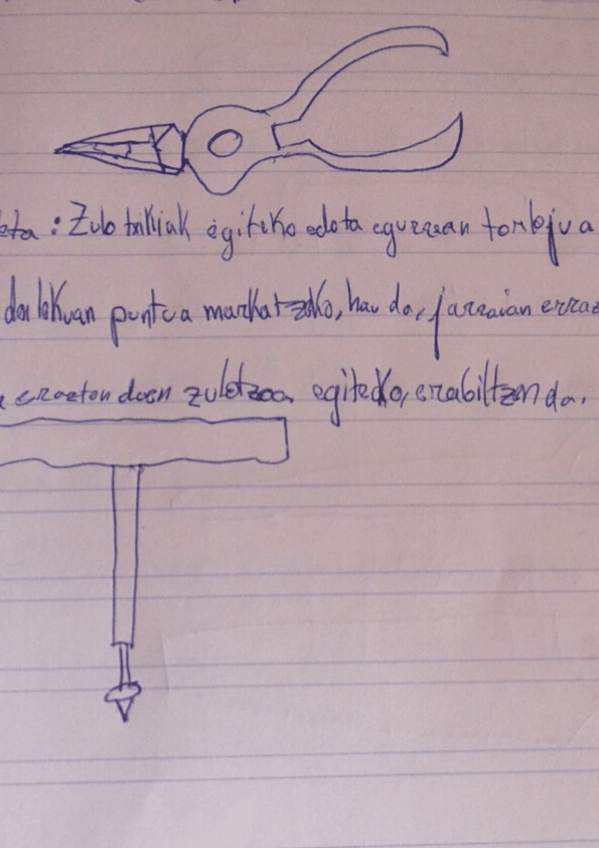 eta: Zulo txikiak egiteko edota egurrean torloju a
den lekuan puntua markatzeko, hau da, jarraian erraz
zuletzea egiteko, erabiltzen da.